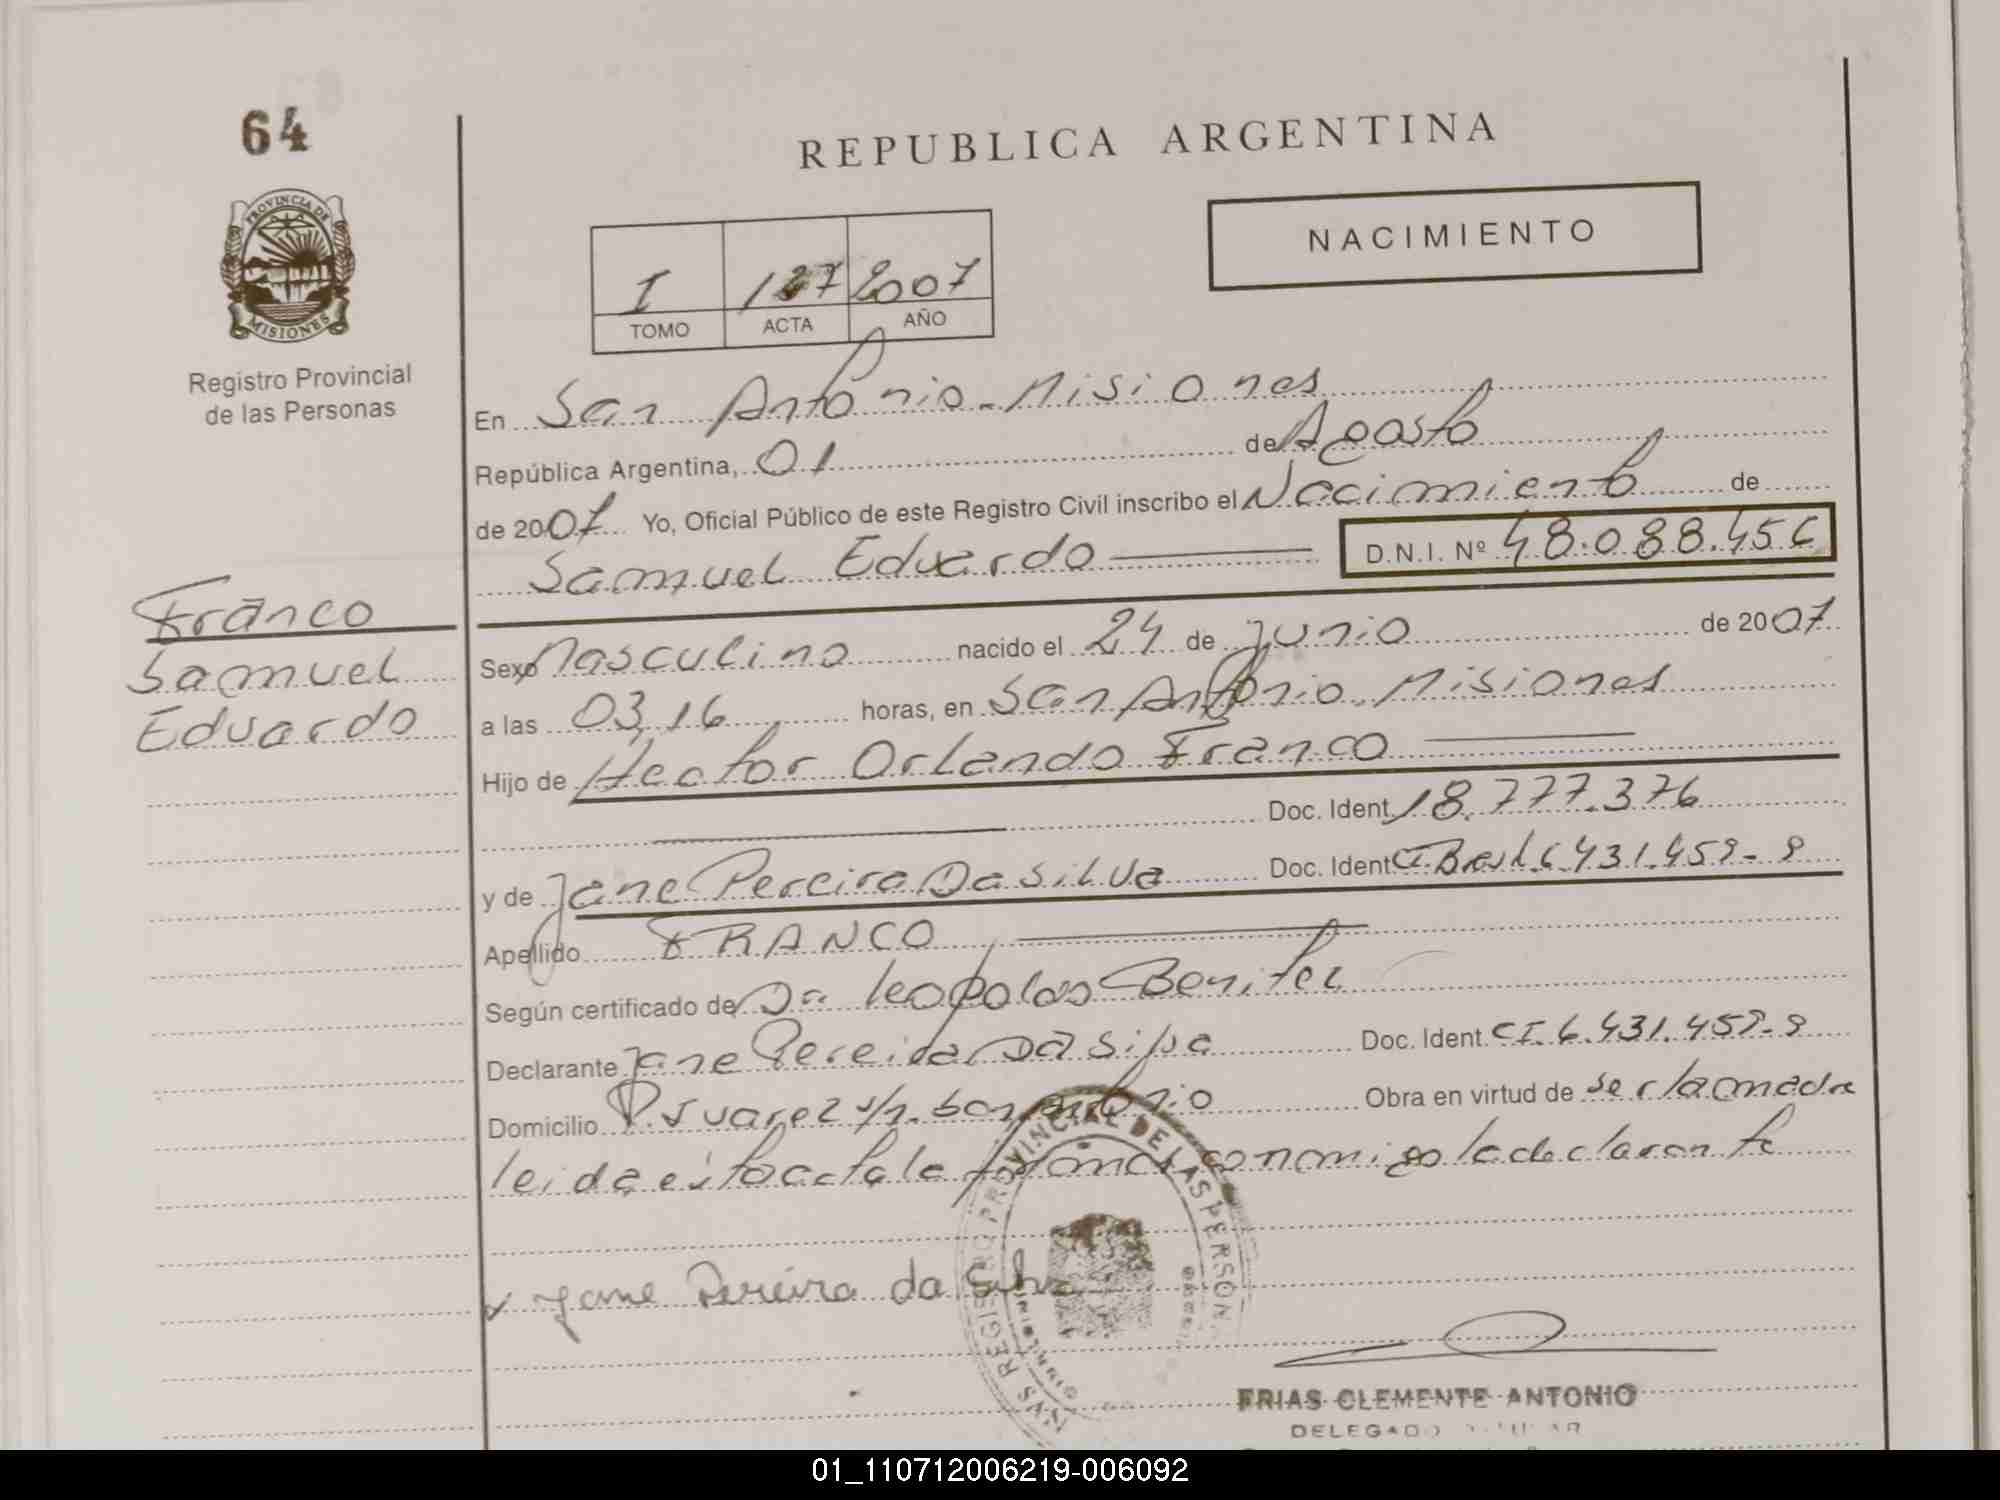 64
PROVINCIA DE
MISIONES
Registro Provincial
de las Personas
REPUBLICA ARGENTINA
NACIMIENTO
I 2007
TOMO ACTA AÑO
En San Antonio - Misiones
República Argentina, 01 de Agosto
de 2007 Yo, Oficial Público de este Registro Civil inscribo el Nacimiento de
Samuel Eduardo D.N.I. Nº 48.088.456
Franco
Samuel
Eduardo
Sexo Masculino nacido el 24 de junio de 2007
a las 03,16 horas, en San Antonio, Misiones
Hijo de Hector Orlando Franco
Doc. Ident. 18.777.376
y de Jane Pereira Da Silva Doc. Ident. CI Bras 6.431.459-9
Apellido FRANCO
Según certificado de Dr. Leopoldo Benitez
Declarante Jane Pereira Da Silva Doc. Ident. CI. 6.431.459-9
Domicilio P. Suarez s/n. San Antonio Obra en virtud de ser la madre
leida esta acta la firma conmigo la declarante
x Jane Pereira da Silva
REGISTRO PROVINCIAL DE LAS PERSONAS
FRIAS CLEMENTE ANTONIO
DELEGADO
01_110712006219-006092